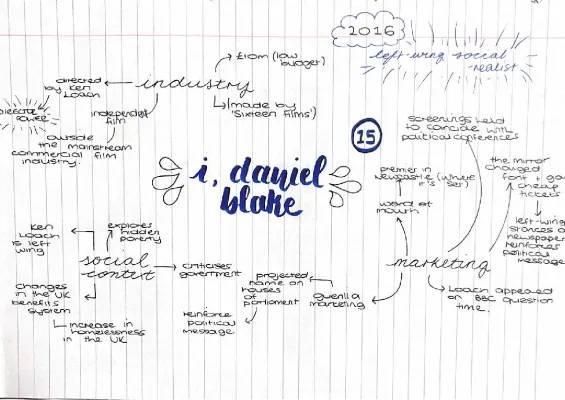 2016
left-wing social
realist
£10m (low
budget)
industry
directed
by Ken
Loach
independent
film
(made by
'Sixteen Films')
outside
the mainstream
commercial film
industry.
15
i, daniel
blake
screenings held
to coincide with
political conferences
the mirror
changed
font + gave
cheap
tickets
premier in
Newcastle (where
it's set)
word of
mouth
left-wing
stances of
newspaper
reinforces
political
message
marketing
Loach appeared
on BBC question
time.
guerilla
marketing
projected
name on
houses
of
parliament
reinforce
political
message
social
context
Ken
Loach
is left
wing
explores
hidden
poverty
criticises
government
changes
in the UK
benefits
system
increase in
homelessness
in the UK